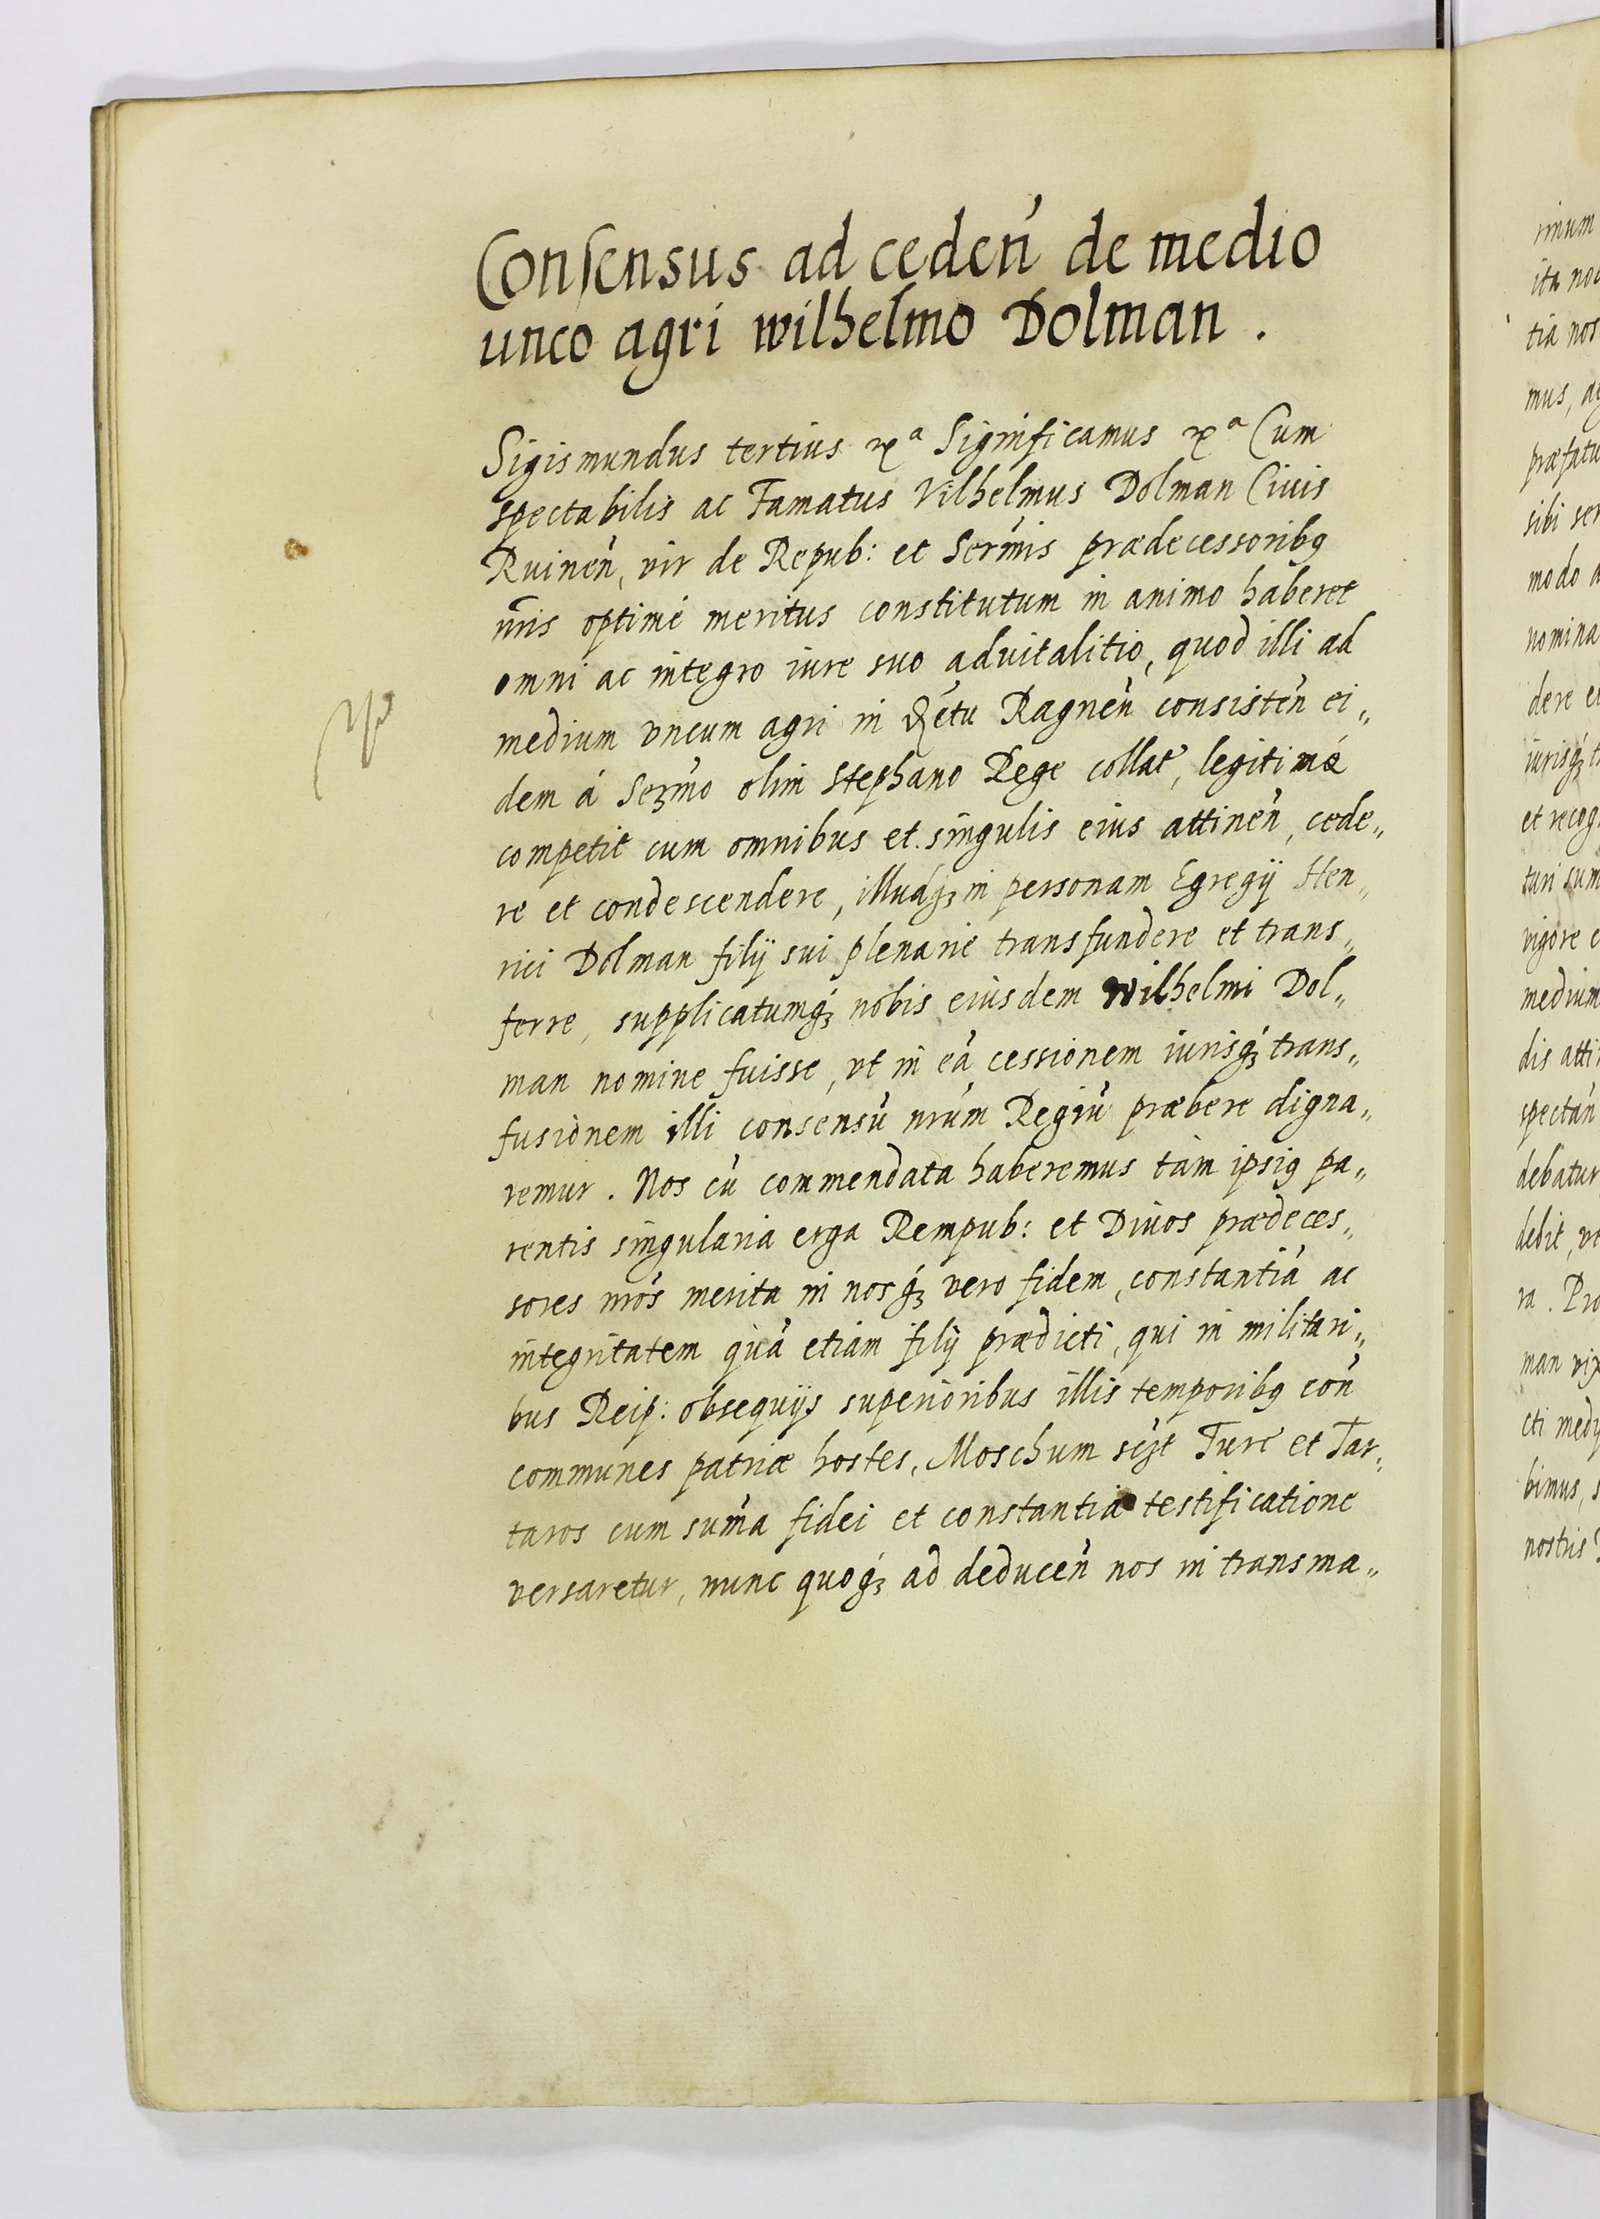 Consensus ad ceden̄ de medio
unco agri wilhelmo Dolman.
Sigismundus tertius rxª Significamus rxª Cum
spectabilis ac Famatus Vilhelmus Dolman Ciuis
Ruinen̄, vir de Repub: et Sermis prædecessoribꝰ
nr̄is optimé meritus constitutum in animo haberet
omni ac integro iure suo aduitalitio, quod illi ad
medium vncum agri in Ragnen̄ consisten̄ ei„
dem á Sermo olim Stephano Rege collat, legitimé
competit cum omnibus et singulis eius attinen̄, cede„
re et condescendere, illudqꝫ in personam Egregij Hen„
rici Dolman filij sui plenarie transfundere et trans„
ferre, supplicatumqꝫ nobis eiusdem wilhelmi Dol„
man nomine fuisse, vt in eā cessionem iurisqꝫ trans„
fusionem illi consensū nrūm Regiū præbere digna„
remur. Nos cū commendata haberemus tam ipsiꝰ pa„
rentis singularia erga Rempub: et Diuos prædeces„
sores nrōs merita in nosqꝫ vero fidem, constantiā ac
integritatem quā etiam filij prædicti, qui in militari„
bus Reip: obsequijs superioribus illis temporibꝰ con̄
communes patriæ hostes, Moschum Turc et Tar„
taros cum sum̄a fidei et constantia testificatione
versaretur, nunc quoqꝫ ad deducen̄ nos in transma„
rinum
ita
tia nos
mus,
præfatu
sibi ser
modo a
nomina
dere
iurisqꝫ
et recog
turi sum
vigore
medium
dis atti
spectan̄
debatur
debit, vt
ra. Pro
man
cti medij
bimus,
nostris